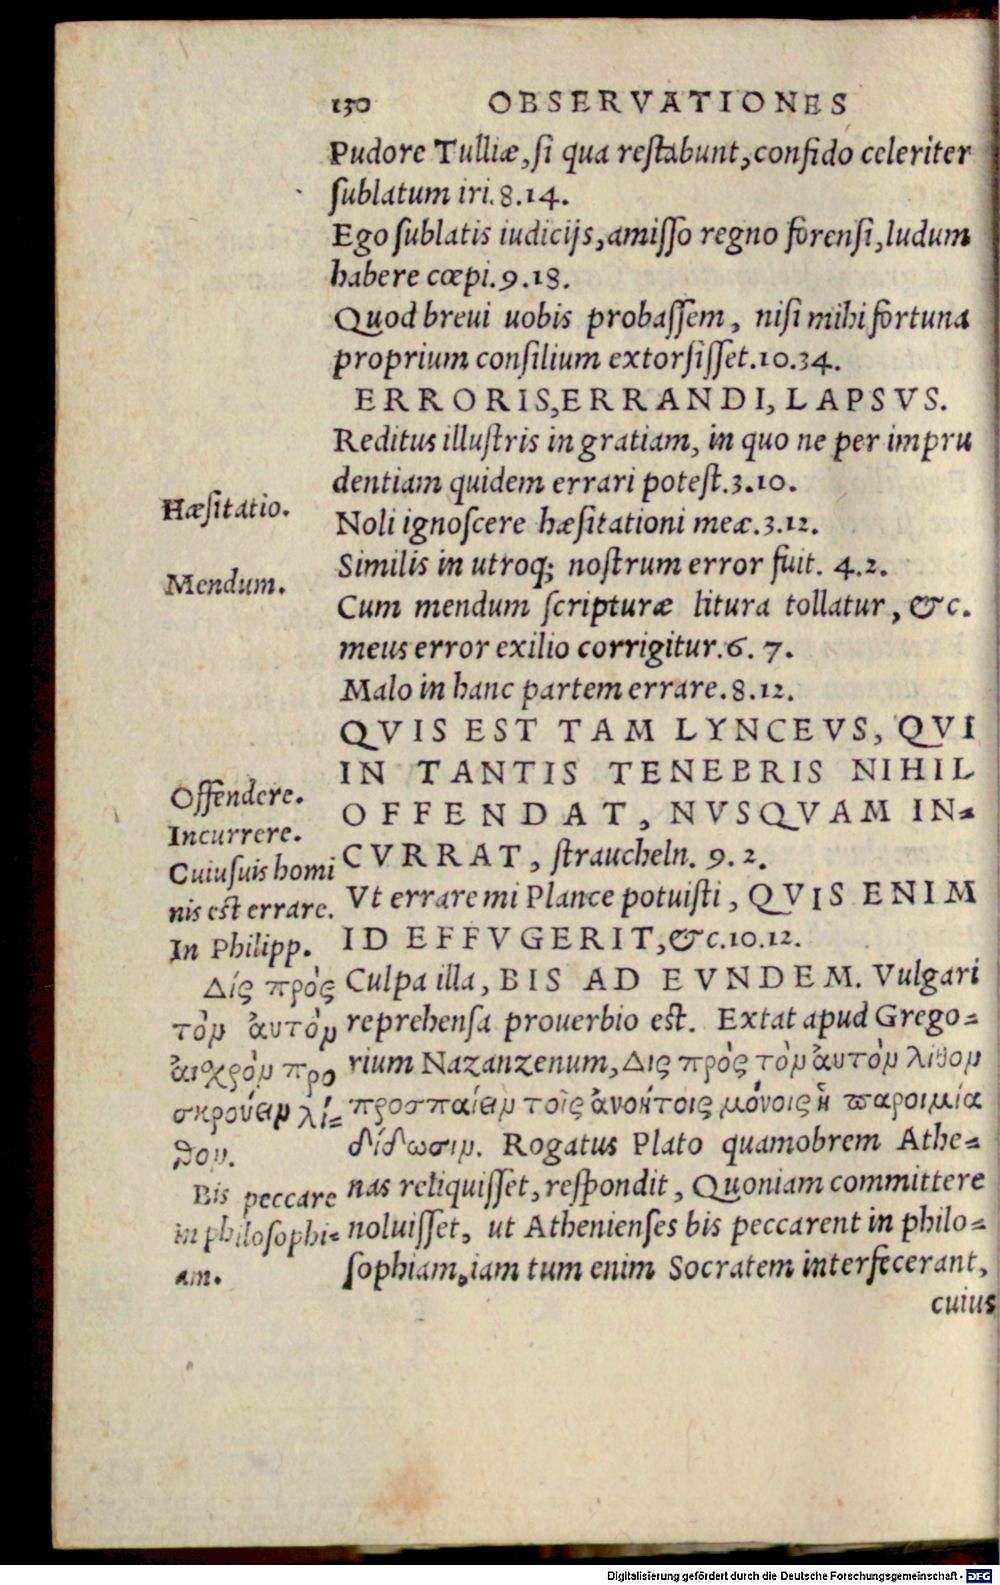 130 OBSERVATIONES
Pudore Tulliæ, ſi qua reſtabunt, confido celeriter
ſublatum iri. 8.14.
Ego ſublatis iudicijs, amiſſo regno forenſi, ludum
habere cœpi. 9.18.
Quod breui uobis probaſſem, niſi mihi fortuna
proprium conſilium extorſiſſet. 10.34.
ERRORIS, ERRANDI, LAPSVS.
Reditus illuſtris in gratiam, in quo ne per impru
dentiam quidem errari poteſt. 3.10.
Hæſitatio.
Noli ignoſcere hæſitationi meæ. 3.12.
Similis in utroq; noſtrum error fuit. 4.2.
Mendum.
Cum mendum ſcripturæ litura tollatur, &c.
meus error exilio corrigitur. 6. 7.
Malo in hanc partem errare. 8.12.
QVIS EST TAM LYNCEVS, QVI
IN TANTIS TENEBRIS NIHIL
OFFENDAT, NVSQVAM IN-
CVRRAT, ſtraucheln. 9. 2.
Vt errare mi Plance potuiſti, QVIS ENIM
ID EFFVGERIT, &c. 10.12.
Culpa illa, BIS AD EVNDEM. Vulgari
reprehenſa prouerbio eſt. Extat apud Grego-
rium Nazanzenum, Δις πρὸς τὸν ἀυτὸν λίθον
προσπαίειν τοῖς ἀνοήτοις μόνοις ἡ παροιμία
δίδωσιν. Rogatus Plato quamobrem Athe-
nas reliquiſſet, reſpondit, Quoniam committere
noluiſſet, ut Athenienſes bis peccarent in philo-
ſophiam, iam tum enim Socratem interfecerant,
cuius
Offendere.
Incurrere.
Cuiuſuis homi
nis eſt errare.
In Philipp.
Δίς πρὸς
τὸν ἀυτὸν
ἀιχρὸν προ
σκρούειν λί-
θον.
Bis peccare
in philoſophi-
am.
Digitalisierung gefördert durch die Deutsche Forschungsgemeinschaft - DFG